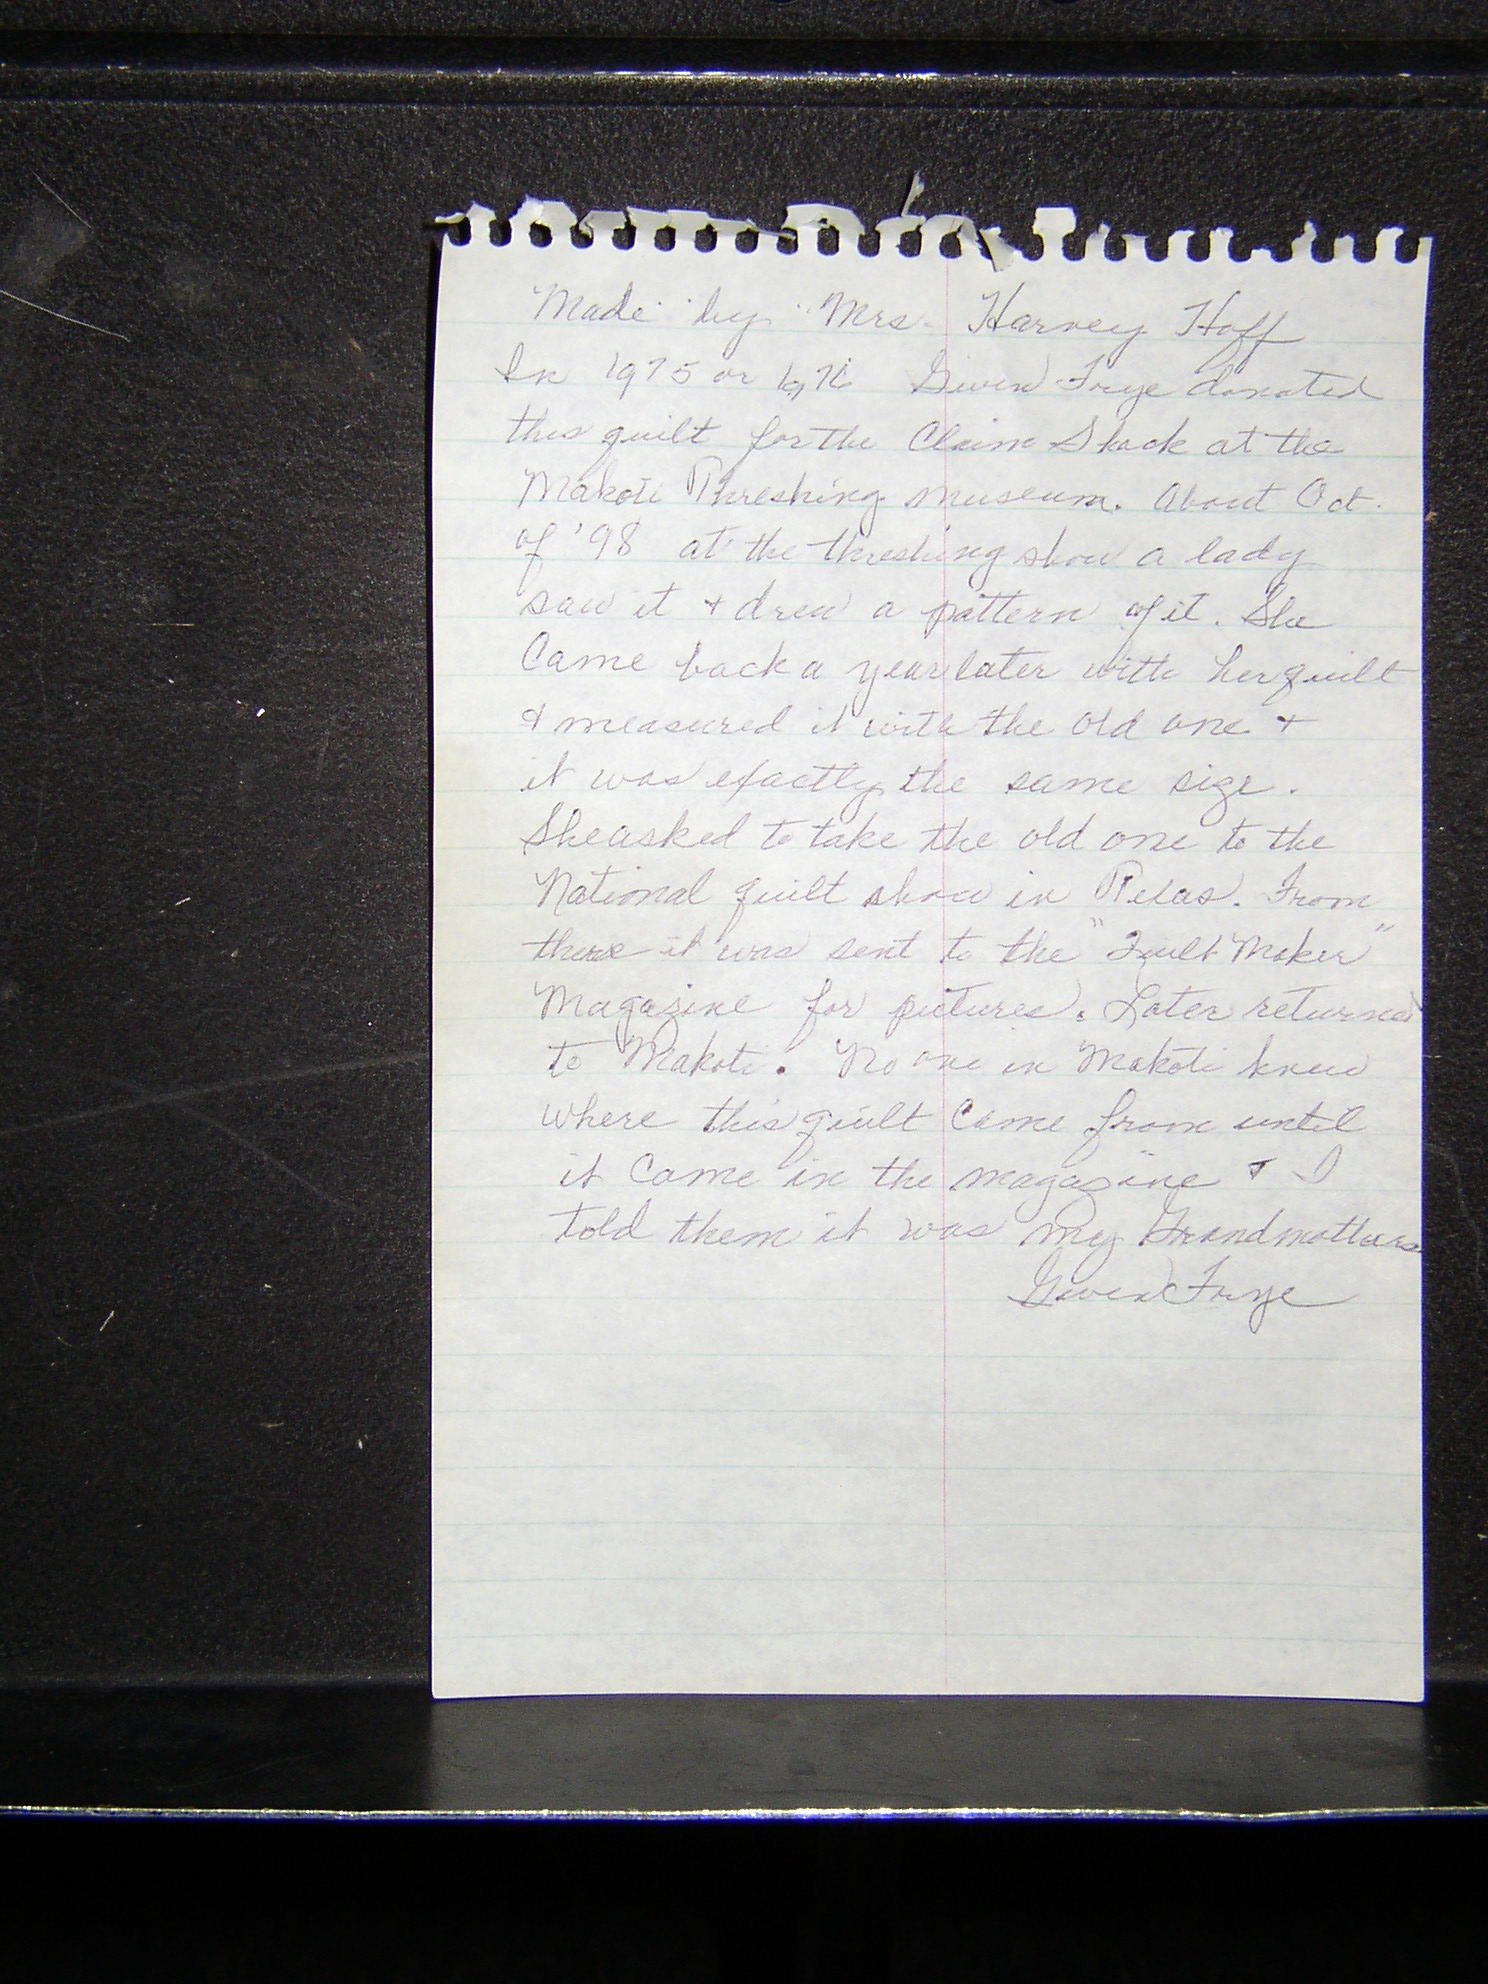 Made by Mrs. Harvey Hoff
In 1975 or 1976 Gwen Frye donated
this quilt for the Claim Shack at the
Makoti Threshing museum. About Oct.
of '98 at the threshing show a lady
saw it + drew a pattern of it. She
Came back a year later with her quilt
& measured it with the old one +
it was exactly the same size.
She asked to take the old one to the
National quilt show in Texas. From
there it was sent to the "Quilt Maker"
Magazine for pictures. Later returned
to Makoti. No one in Makoti knew
where this quilt Came from until
it Came in the magazine & I
told them it was my Grandmothers
Gwen Frye